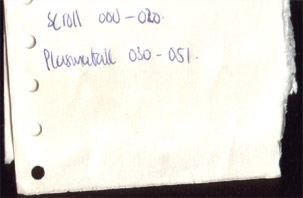 Scroll 000 - 020.
Plasmaball 030 - 051.